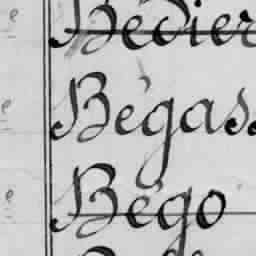 Bédier
Bégas
Bégo